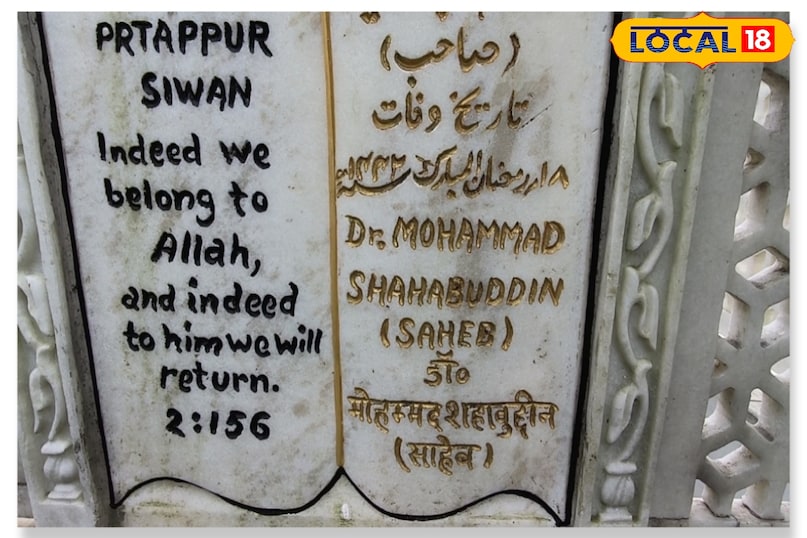 PRTAPPUR
SIWAN
Indeed we
belong to
Allah,
and indeed
to him we will
return.
2:156
(صاحب)
تاریخ وفات
۱۸ رمضان المبارک ۱۴۴۲
Dr. MOHAMMAD
SHAHABUDDIN
(SAHEB)
डॉ०
मोहम्मद शहाबुद्दीन
(साहेब)
LOCAL 18